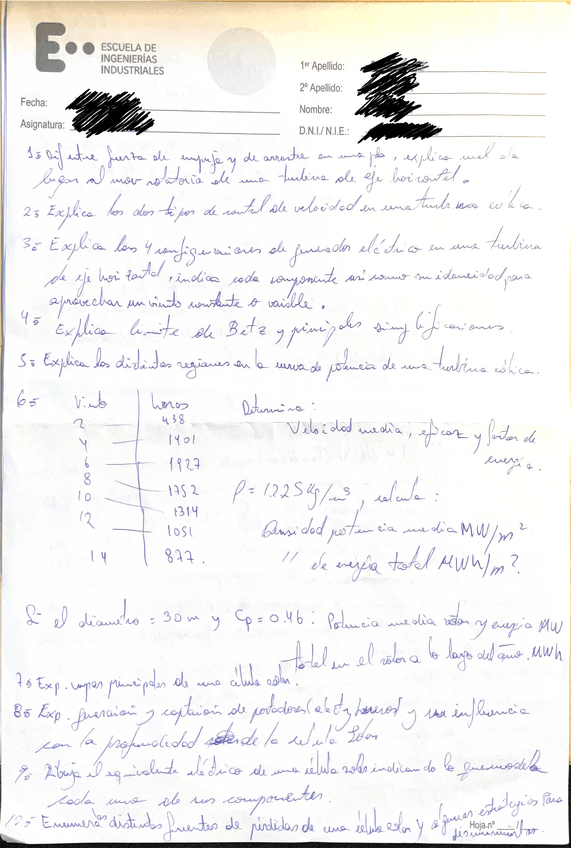 E••
ESCUELA DE
INGENIERÍAS
INDUSTRIALES
1er Apellido:
2º Apellido:
Nombre:
D.N.I./ N.I.E.:
Fecha:
Asignatura:
1º fuerza de empuje y de arrastre en una pala, explica cual da
lugar al mov rotatorio de una turbina de eje horizontal.
2º Explica los dos tipos de control de velocidad en una turbina eólica.
3º Explica las 4 configuraciones de generador eléctrico en una turbina
de eje horizontal, indica cada componente así como su idoneidad para
aprovechar un viento constante o variable.
4º Explica limite de Betz y principales simplificaciones.
5º Explica las distintas regiones en la curva de potencia de una turbina eólica.
6º Viento horas Determina:
2 438
Velocidad media, eficaz y factor de
4 1401
energía.
6 1927
8 1752
ρ = 1.225 Kg/m³, calcula:
10 1314
12 1051
Densidad potencia media MW/m²
14 877.
" de energía total MWh/m².
Si el diametro = 30 m y Cp = 0.46: Potencia media rotor y energía MW
total en el rotor a lo largo del año. MWh
7º Exp. capas principales de una célula solar.
8º Exp. generación y captación de portadores y su influencia
con la profundidad de la célula
9º Dibuja el equivalente eléctrico de una célula solar indicando lo que modela
cada uno de sus componentes.
10º Enumera distintas fuentes de pérdidas de una célula solar y algunas estrategias para
Hoja nº